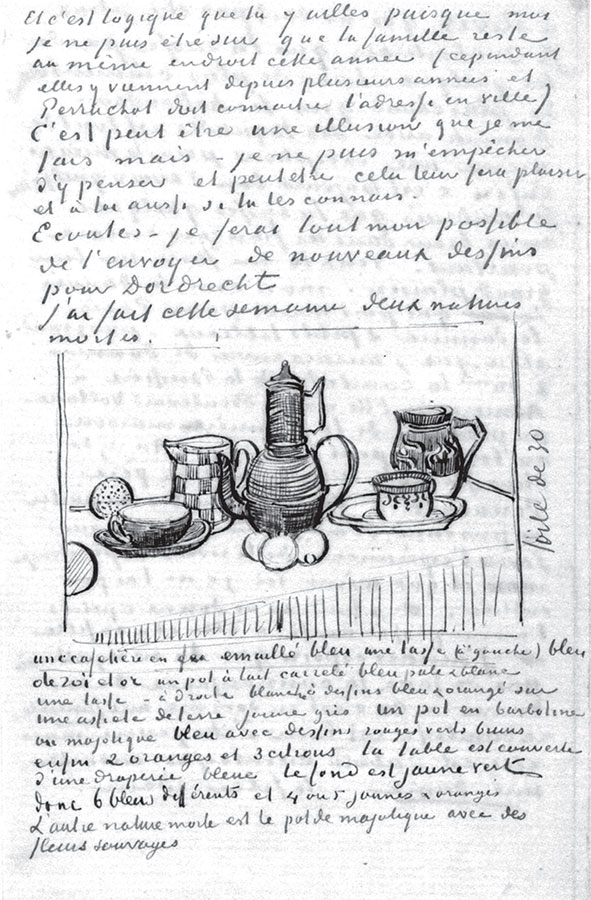 Et c'est logique que tu y ailles puisque moi
je ne puis être sur que la famille reste
au même endroit cette année (cependant
elles y viennent depuis plusieurs années et
Perruchot doit connaitre l'adresse en ville)
C'est peut être une illusion que je me
fais mais – je ne puis m'empêcher
d'y penser et peutetre cela leur fera plaisir
et à toi aussi si tu les connais.
Ecoutes – je ferai tout mon possible
de t'envoyer de nouveaux dessins
pour Dordrecht
J'ai fait cette semaine deux natures
mortes.
toile de 30
une cafetière en fer emaillé bleu une tasse (à gauche) bleu
de roi et or un pot à lait carrelé bleu pale & blanc
une tasse – à droite blanche à dessins bleu & orangé sur
une assiete de terre jaune gris un pot en barbotine
ou majolique bleu avec dessins rouges verts bruns
enfin 2 oranges et 3 citrons la table est couverte
d'une draperie bleue le fond est jaune vert
donc 6 bleus différents et 4 ou 5 jaunes & orangés
L'autre nature morte est le pot de majolique avec des
fleurs sauvages